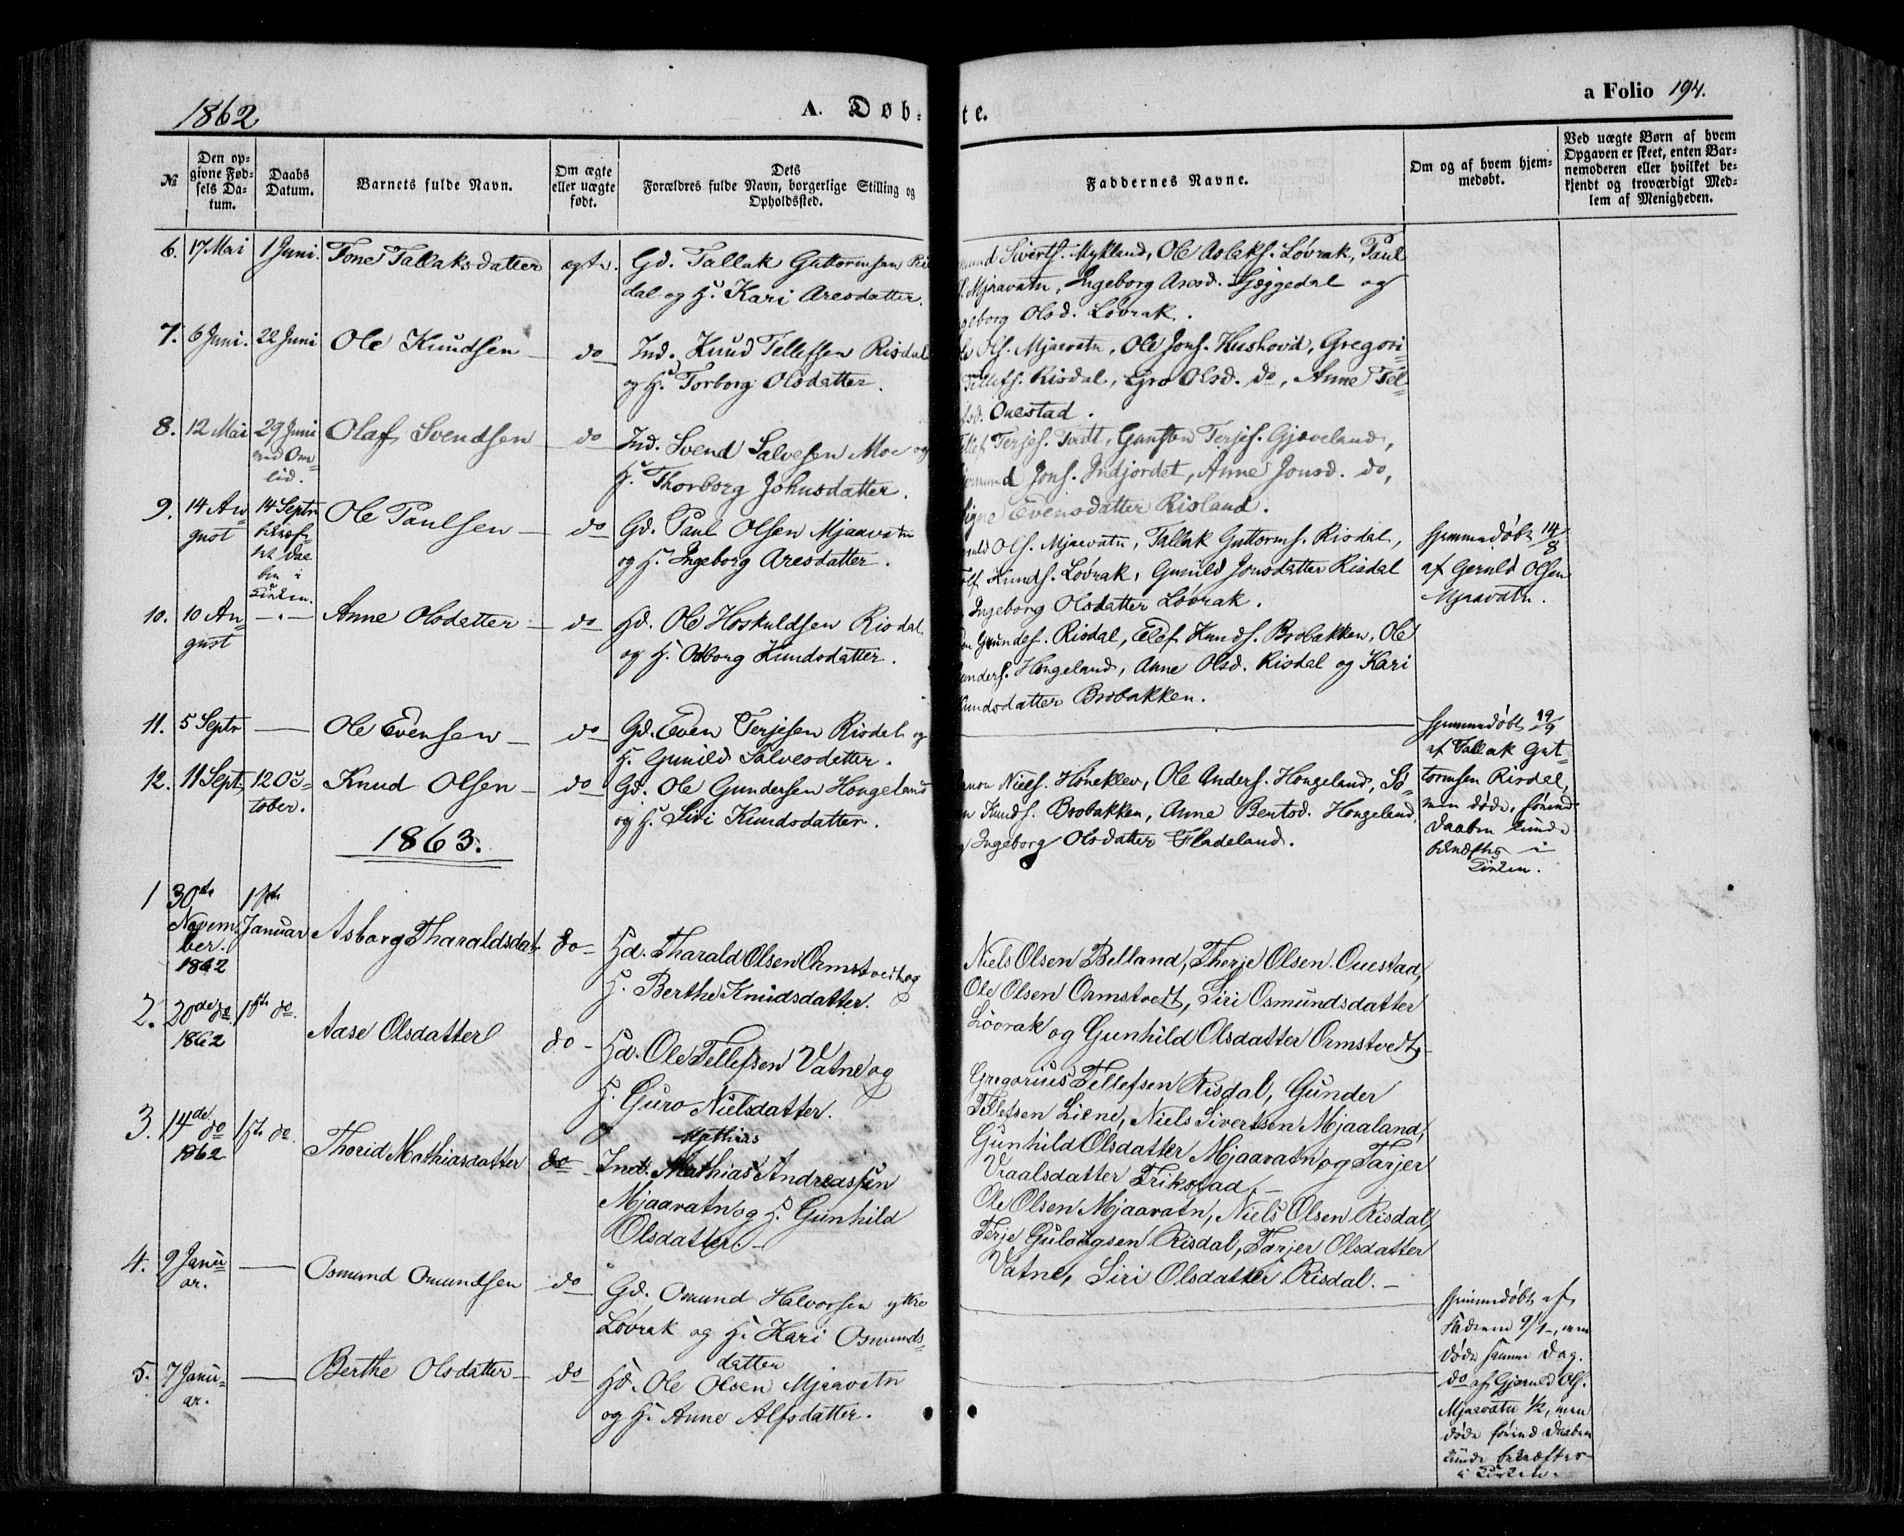 1862
A. Døb-
te.
a Folio 194.
№
Den op-
givne Fød-
sels Da-
tum.
Daabs
Datum.
Barnets fulde Navn.
Om ægte
eller uægte
født.
Dets
Forældres fulde Navn, borgerlige Stilling og
Opholdssted.
Faddernes Navne.
Om og af hvem hjem-
medøbt.
Ved uægte Børn af hvem
Opgaven er skeet, enten Bar-
nemoderen eller hvilket be-
kjendt og troværdigt Med-
lem af Menigheden.
6. 17 Mai 1 Juni. Tone Tallaksdatter ægte. Gd. Tallak Guttormsen Ris
dal og H. Kari Aresdatter.
mund Siverts. Mykland, Ole Aslaks. Løvrak, Paul
Mjaavatn, Ingeborg Aresd. Skjeggedal og
geborg Olsd. Løvrak.
7. 6 Juni. 22 Juni Ole Knudsen do Ind. Knud Tellefsen Risdal
og H. Torborg Olsdatter.
Ols. Mjaavatn, Ole Jons. Hushovd, Gregori-
Tellefs. Risdal, Gro Olsd. do, Anne Tel-
Ouestad.
8. 12 Mai 29 Juni Olaf Svendsen do Ind. Svend Salvesen Moe og
H. Thorborg Johnsdatter.
Terjes. Tvedt, Gunsten Terjes. Gjæveland,
Jons. Indjordet, Anne Jonsd. do,
Signe Evensdatter Risland.
9. 14 Au-
gust 14 Septr
bekræf-
tet Daa-
ben i
Kirken. Ole Paulsen do Gd. Paul Olsen Mjaavatn
og H. Ingeborg Aresdatter.
Ols. Mjaavatn, Tallak Guttorms. Risdal,
Knuds. Løvrak, Gunild Jonsdatter Risdal
Ingeborg Olsdatter Løvrak.
Hjemmedøbt 14/8
af Geruld Olsen
Mjaavatn.
10. 10 Au-
gust Anne Olsdatter do Gd. Ole Hoskuldsen Risdal
og H. Osborg Knudsdatter.
Gundes. Risdal, Elef Knuds. Brobakken, Ole
Gunders. Hongeland, Anne Olsd. Risdal og Kari
Knudsdatter Brobakken.
11. 5 Septr Ole Evensen do Gd. Even Terjesen Risdal og
H. Gunild Salvesdatter.
Hjemmedøbt 19/9
af Tallak Gut-
tormsen Risdal,
men døde, førend
Daaben kunde
bekræftes i
Kirken.
12. 11 Sept. 12 Oc-
tober. Knud Olsen do Gd. Ole Gundersen Hongeland
og H. Siri Knudsdatter.
Niels. Høneklev, Ole Anders. Hongeland, Sø-
Knuds. Brobakken, Anne Bentsd. Hongeland,
Ingeborg Olsdatter Fladeland.
1863.
1 30te
Novem-
ber.
1862 1ste
Januar Asborg Tharaldsdat. do Gd. Tharald Olsen Ormstvedt og
H. Berthe Knudsdatter.
Niels Olsen Belland, Therje Olsen Ouestad,
Ole Olsen Ormstvedt, Siri Osmundsdatter
Løvrak og Gunhild Olsdatter Ormstvedt
2. 20de do
1862 1ste do. Aase Olsdatter do Gd. Ole Tellefsen Vatne og
H. Guro Nielsdatter.
Gregorius Tellefsen Risdal, Gunder
Tellefsen Liene, Niels Sivertsen Mjaaland,
Gunhild Olsdatter Mjaavatn og Tarjer
Vraalsdatter Frikstad.
3. 14de do
1862 1ste do. Thorid Mathiasdatter do Ind. Mathias Andreassen
Mathias
Mjaavatn og H. Gunhild
Olsdatter.
Ole Olsen Mjaavatn, Niels Olsen Risdal,
Terje Gulovgsen Risdal, Tarjer Olsdatter
Vatne, Siri Olsdatter Risdal.
4. 9 Janu-
ar. Osmund Omundsen do Gd. Omund Halvorsen ytre
Løvrak og H. Kari Osmunds-
datter
Hjemmedøbt af
Faderen 9/1, men
døde samme Dag.
5. 7 Janu-
ar. Berthe Olsdatter do Gd. Ole Olsen Mjaavatn
og H. Anne Alfsdatter.
do af Gjeruld Ols.
Mjaavatn 1/2, men
døde førend Daaben
kunde bekræftes
i Kirken.